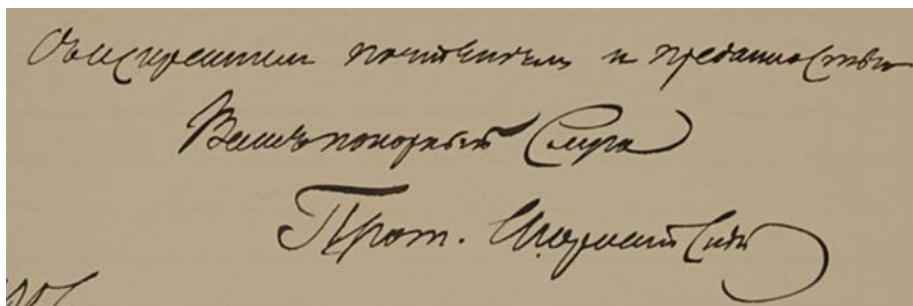 Съ искреннимъ почтеніемъ и преданностью
Вашъ покорный Слуга
Прот.